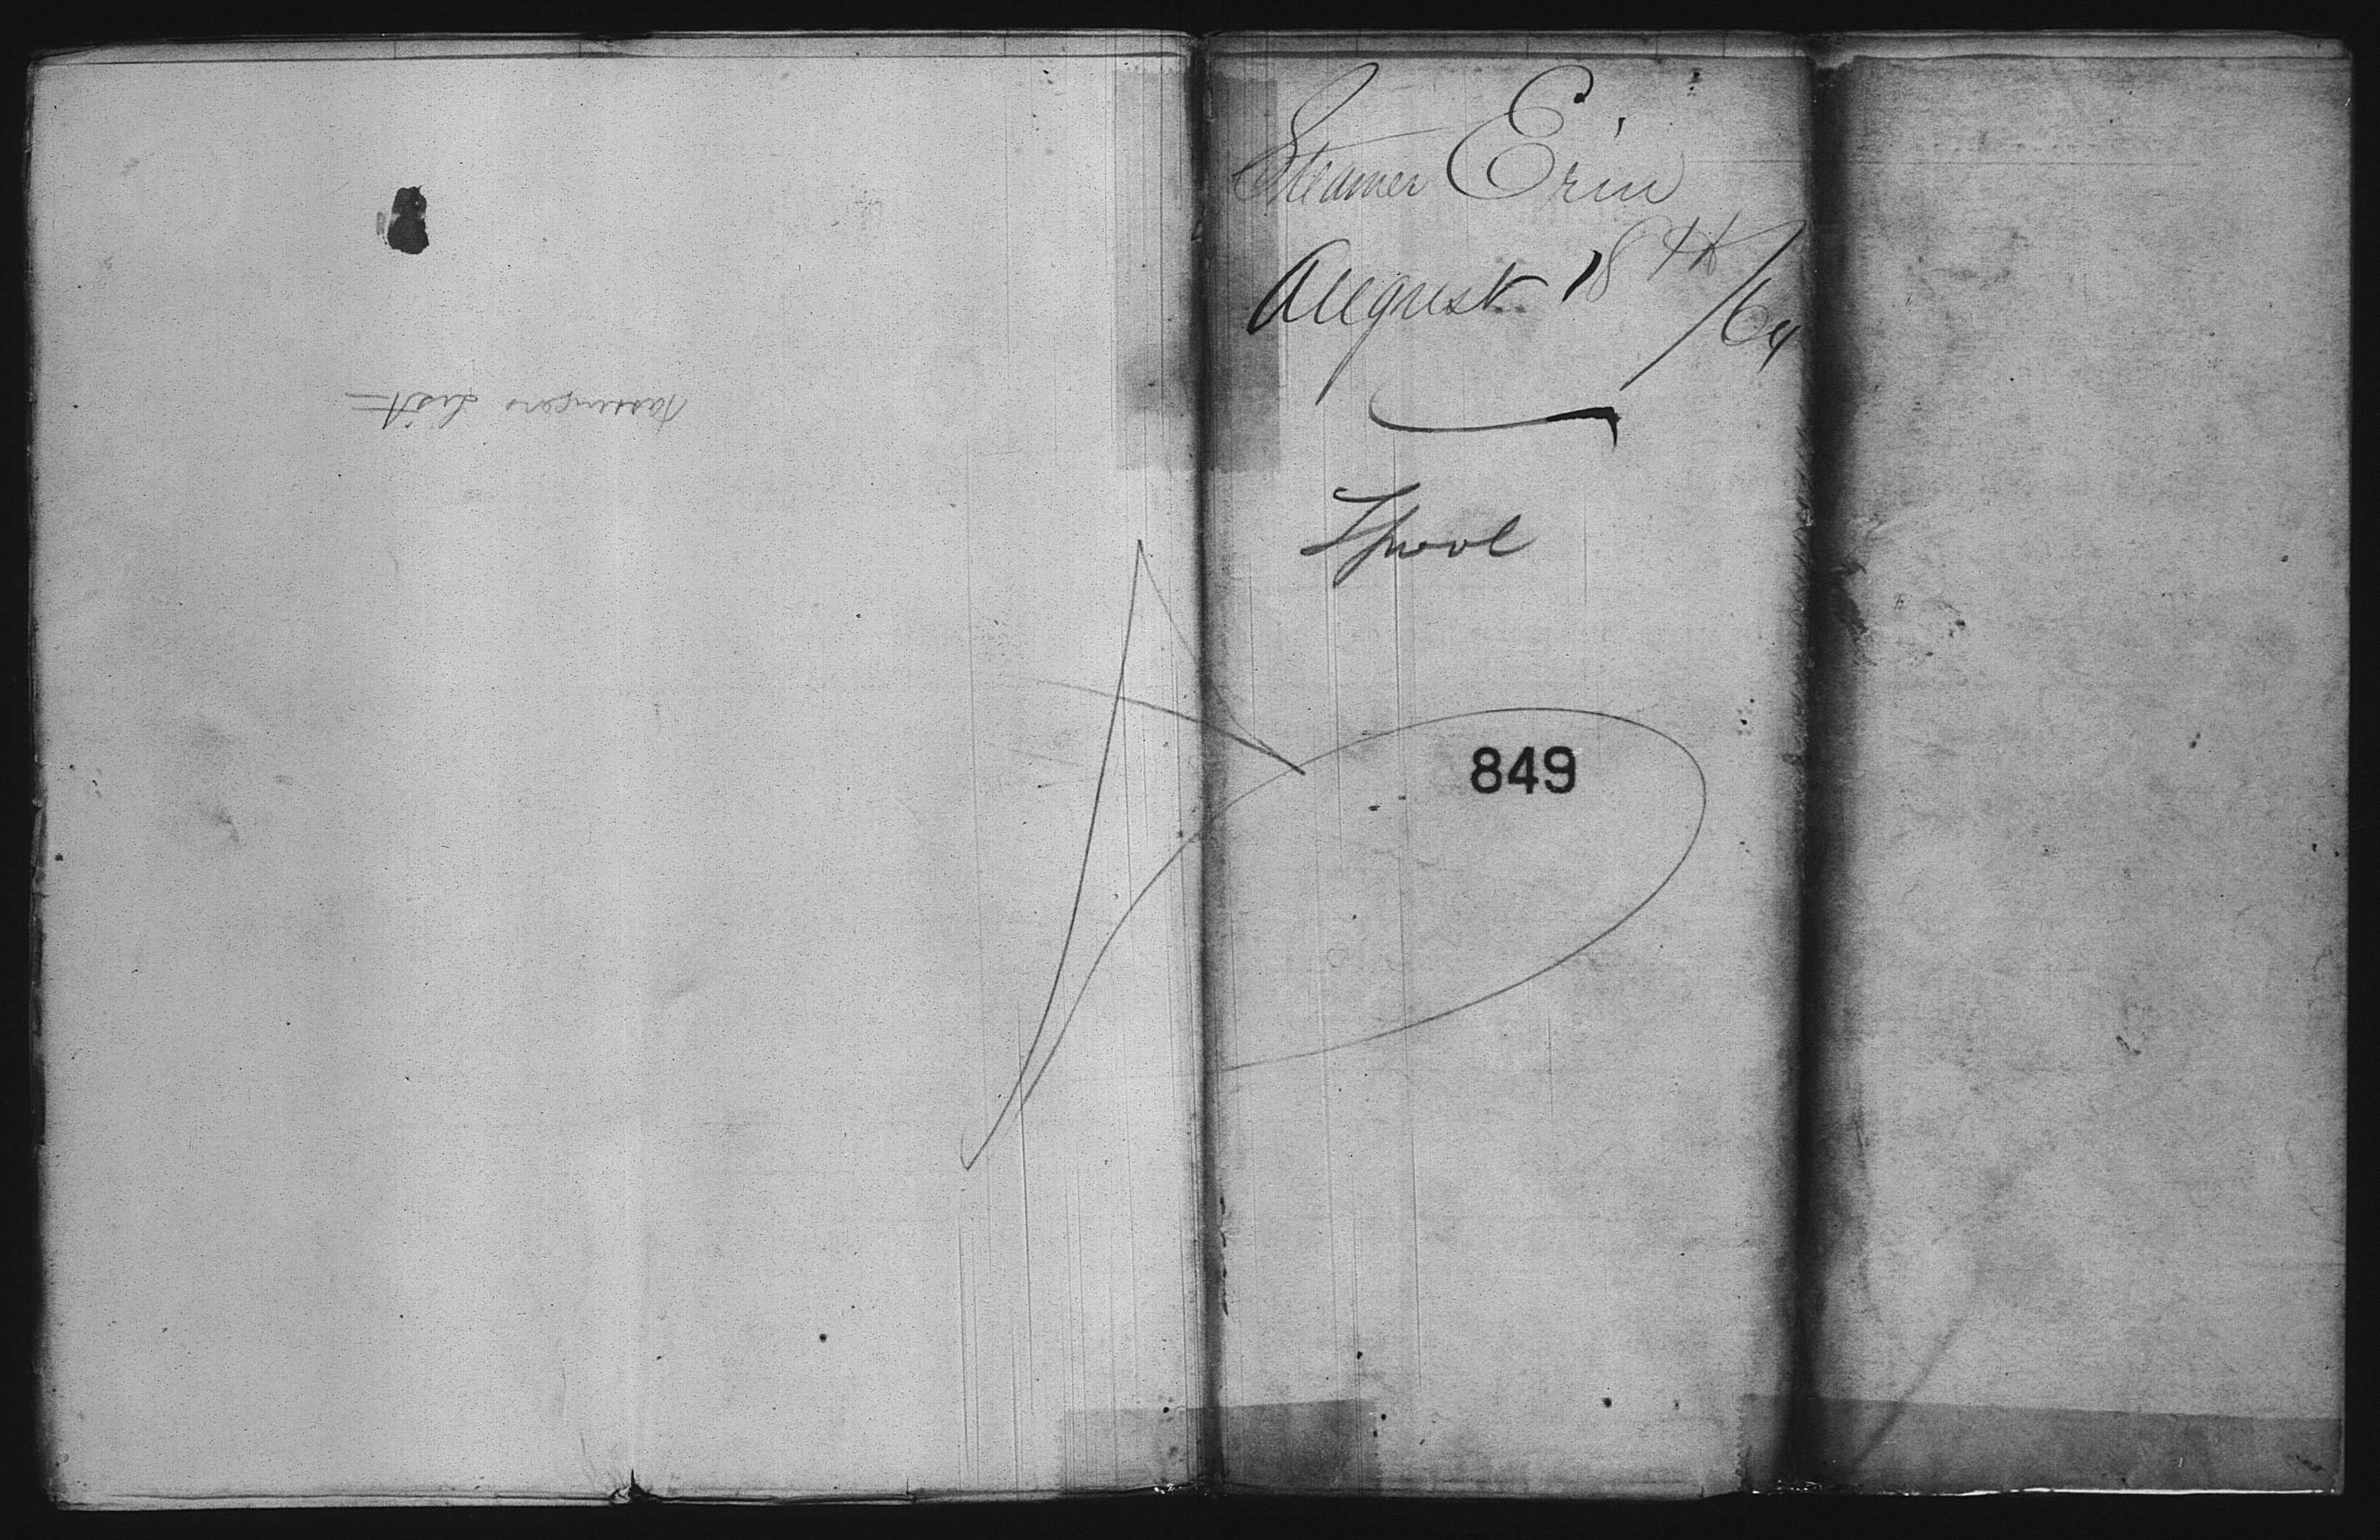 Steamer Erin
August 18th/64
Lpool
849
Passengers List